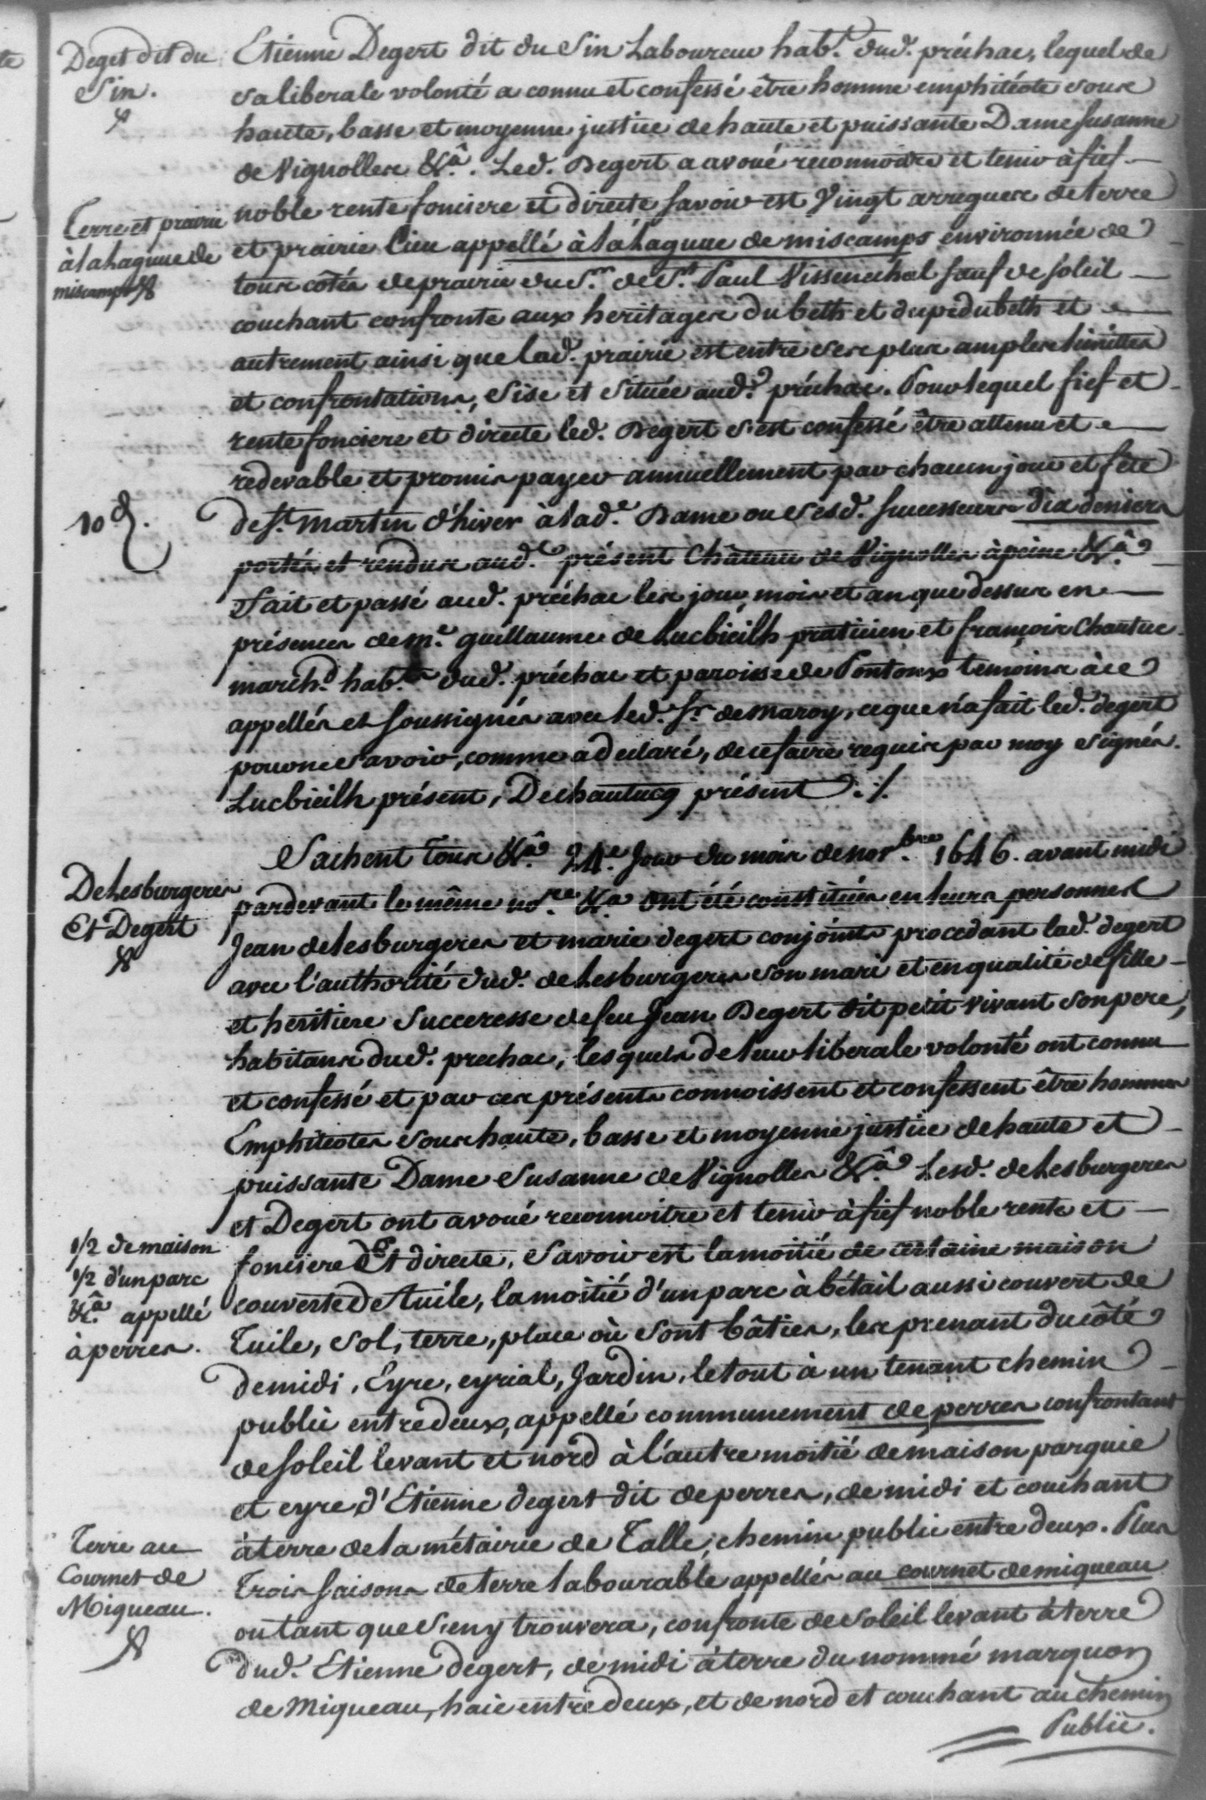 Deget dit du
Sin.
Etiénne Degert dit du Sin Laboureur hab.t dud. préchac, lequel de
sa liberale volonté a connu et confessé être homme emphitéote sous
haute, basse et moyenne justice de haute et puissante Dame Susanne
de Vignolles &.a. Led. Degert a avoué reconnoitre et tenir à fief
Terre et prairie
à la hagnue de
miscamps
noble rente fonciere et directe savoir est Vingt arregues de terre
et prairie lieu appellé à la hagnue de miscamps environnée de
tous côtés de prairie du S.r de S.t Paul Vissenechal sauf de soleil
couchant confronte aux heritages du beth et dupedubeth et
autrement ainsi que lad. prairie est entre ses plus amples limittes
et confrontations, sise et située aud. préchac. Pour lequel fief et
rente fonciere et directe led. Degert s'est confessé être attenu et
redevable et promis payer annuellement par chacun jour et fête
10 d.
de S.t Martin d'hiver à lad.e Dame ou ses d. successeurs dix deniers
portés et rendus aud. présent Château de Vignolles à peine &.a
Fait et passé aud. préchac les jour, mois et an que dessus en
présences de m.e guillaume de Lucbieilh praticien et françois Chautuc
march.d hab.ts dud. préchac et paroisse de Pontonx temoins à ce
appellés et soussignés avec led. S.r de maroy, ce que n'a fait led. degert
pour ne savoir, comme a declaré, de ce faire requis par moy signés.
Lucbieilh présent, Dechautucq présent ./.
Sachent tous &.a 24.e Jour du mois de nov.bre 1646. avant midi
DeLesburgeres
Et Degert
pardevant le même no.re &.a ont été constitués en leurs personnes
Jean delesburgeres et marie degert conjoints procedant lad. degert
avec l'authorité dud. de Lesburgeres son mari et en qualité de fille
et heritiere Succeresse de feu Jean Degert dit petit vivant son pere,
habitans dud. prechac, lesquels de leur liberale volonté ont connu
et confessé et par ces présents connoissent et confessent être hommes
Emphiteotes sous haute, basse et moyenne justice de haute et
puissante Dame Susanne de Vignolles &.a Lesd. de Lesburgeres
et Degert ont avoué reconnoitre et tenir à fief noble rente et
1/2 de maison
1/2 d'un parc
&.a appellé
à perres.
fonciere Et directe, savoir est la moitié de certaine maison
couverte de tuile, la moitié d'un parc à bétail aussi couvert de
tuile, sol, terre, place où sont bâties, les prenant du côté
de midi, Eyre, eyrial, Jardin, le tout à un tenant chemin
public entre deux, appellé communement de perres confrontant
de soleil levant et nord à l'autre moitié de maison parquie
et eyre d'Etienne degert dit de perres, de midi et couchant
à terre de la métairie de Talle, chemin public entre deux. Plus
Terre au
Cournet de
Miqueau.
Trois saisons de terre labourable appellés au cournet de miqueau
ou tant que s'en y trouvera, confronte de soleil levant à terre
dud. Etienne degert, de midi à terre du nommé marquon
de Miqueau, haie entre deux, et de nord et couchant au chemin
Public.